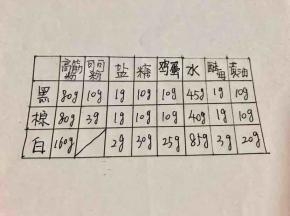 高筋粉 可可粉 盐 糖 鸡蛋 水 酵母 黄油
黑 80g 10g 1g 10g 10g 45g 1g 10g
棕 80g 3g 1g 10g 10g 40g 1g 10g
白 160g 2g 20g 25g 85g 3g 20g